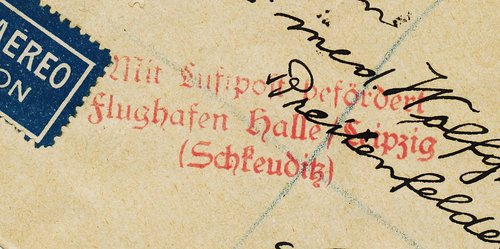 AEREO
ON
Mit Luftpost befördert
Flughafen Halle/Leipzig
(Schkeuditz)
med. Wolfg